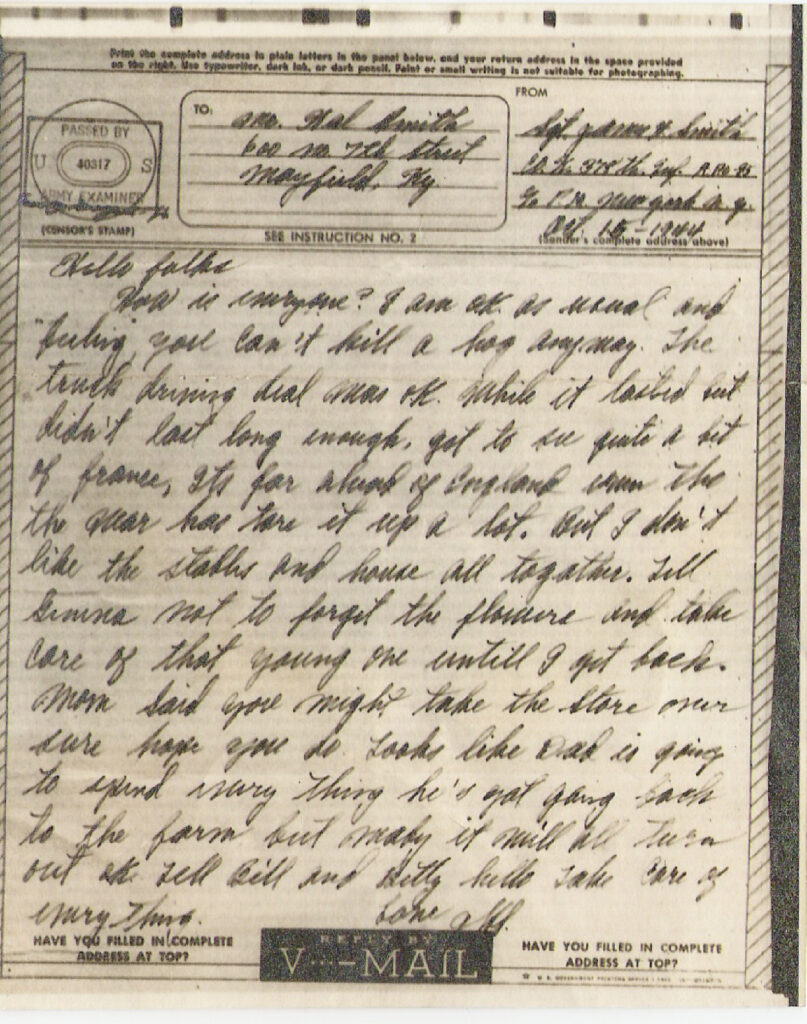 Print the complete address in plain letters in the panel below, and your return address in the space provided
on the right. Use typewriter, dark ink, or dark pencil. Faint or small writing is not suitable for photographing.
FROM
TO:
Mr. Hal Smith
600 No. 7th Street
Mayfield, Ky
Sgt James H. Smith
Co. K. 378th Inf. A.P.O. 95
% P.M. New York N.Y.
Oct. 15-1944
(Sender's complete address above)
PASSED BY
U 40317 S
ARMY EXAMINER
(CENSOR'S STAMP)
SEE INSTRUCTION NO. 2
Hello folks
How is everyone? I am ok. as usual and
feeling, you can't kill a hog anyway. The
truck driving deal was ok. while it lasted but
didn't last long enough, got to see quite a bit
of france, Its far ahead of England even tho
the war has tore it up a lot. But I don't
like the stables and house all together. Tell
not to forget the flowers and take
care of that young one untill I get back.
Mom said you might take the store over
sure hope you do. Looks like Dad is going
to spend every thing he's got going back
to the farm but maby it will all turn
out ok. Tell Bill and Betty hello Take care of
every thing.
Love
HAVE YOU FILLED IN COMPLETE
ADDRESS AT TOP?
REPLY BY
V···—MAIL
HAVE YOU FILLED IN COMPLETE
ADDRESS AT TOP?